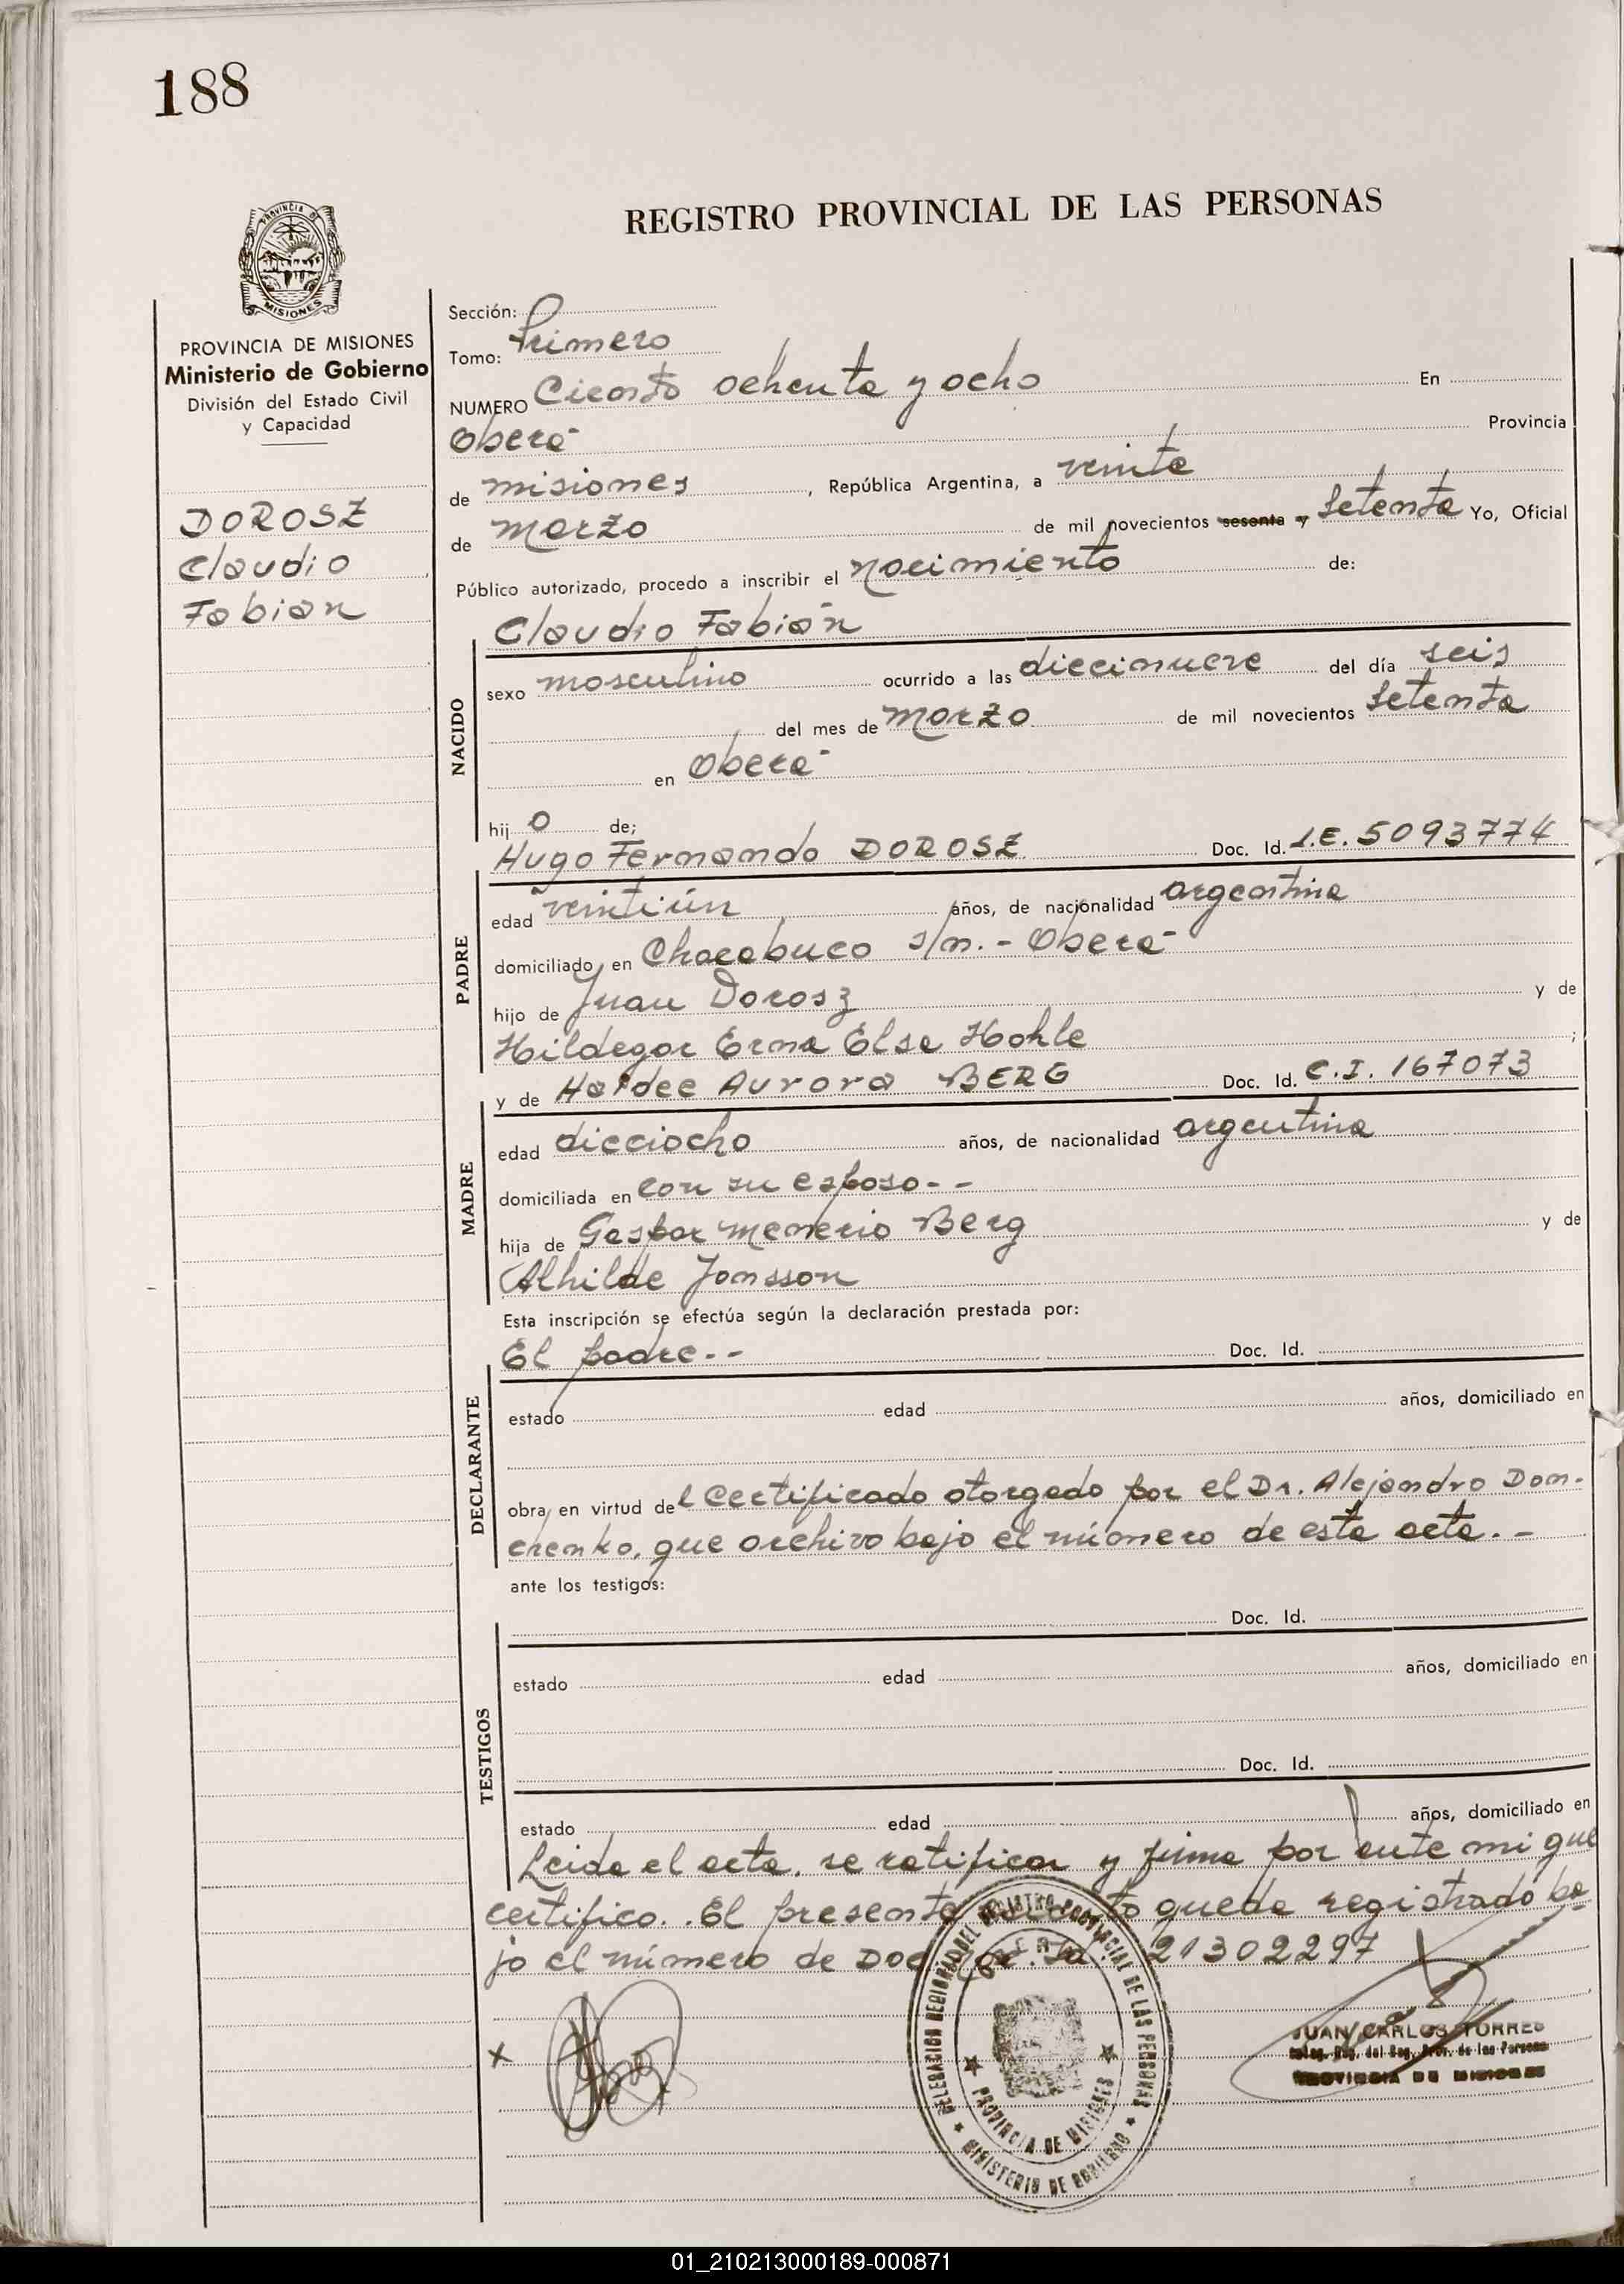 188
REGISTRO PROVINCIAL DE LAS PERSONAS
PROVINCIA DE
MISIONES
PROVINCIA DE MISIONES
Ministerio de Gobierno
División del Estado Civil
y Capacidad
DOROSZ
Claudio
Fabian
Sección:
Tomo: Primero
NUMERO Ciento ochenta y ocho En
Oberá Provincia
de misiones, República Argentina, a veinte
de marzo de mil novecientos sesenta y setenta Yo, Oficial
Público autorizado, procedo a inscribir el nacimiento de:
Claudio Fabián
NACIDO
sexo masculino ocurrido a las diecinueve del día seis
del mes de marzo de mil novecientos setenta
en Oberá
hij o de;
Hugo Fernando DOROSZ Doc. Id. L.E. 5093774
PADRE
edad veintiún años, de nacionalidad argentina
domiciliado en Chacabuco s/n. - Oberá
hijo de Juan Dorosz y de
Hildegar Erna Elsa Hohle ;
y de Haidee Aurora BERG Doc. Id. C.I. 167073
MADRE
edad dieciocho años, de nacionalidad argentina
domiciliada en con su esposo - -
hija de Gaspar Menerio Berg y de
Alhilde Jonsson
Esta inscripción se efectúa según la declaración prestada por:
El padre - - Doc. Id.
DECLARANTE
estado edad años, domiciliado en
obra, en virtud del certificado otorgado por el Dr. Alejandro Don-
chenko, que archivo bajo el número de esta acta. -
ante los testigos:
Doc. Id.
TESTIGOS
estado edad años, domiciliado en
Doc. Id.
estado edad años, domiciliado en
Leida el acta, se ratifica y firma por ante mi que
certifico. El presente queda registrado ba-
jo el número de Doc. 21302297
DELEGACION REGIONAL DEL REGISTRO PROVINCIAL DE LAS PERSONAS
PROVINCIA DE MISIONES
MINISTERIO DE GOBIERNO
x
JUAN CARLOS TORRES
Deleg. Reg. del Reg. Prov. de las Personas
PROVINCIA DE MISIONES
01_210213000189-000871